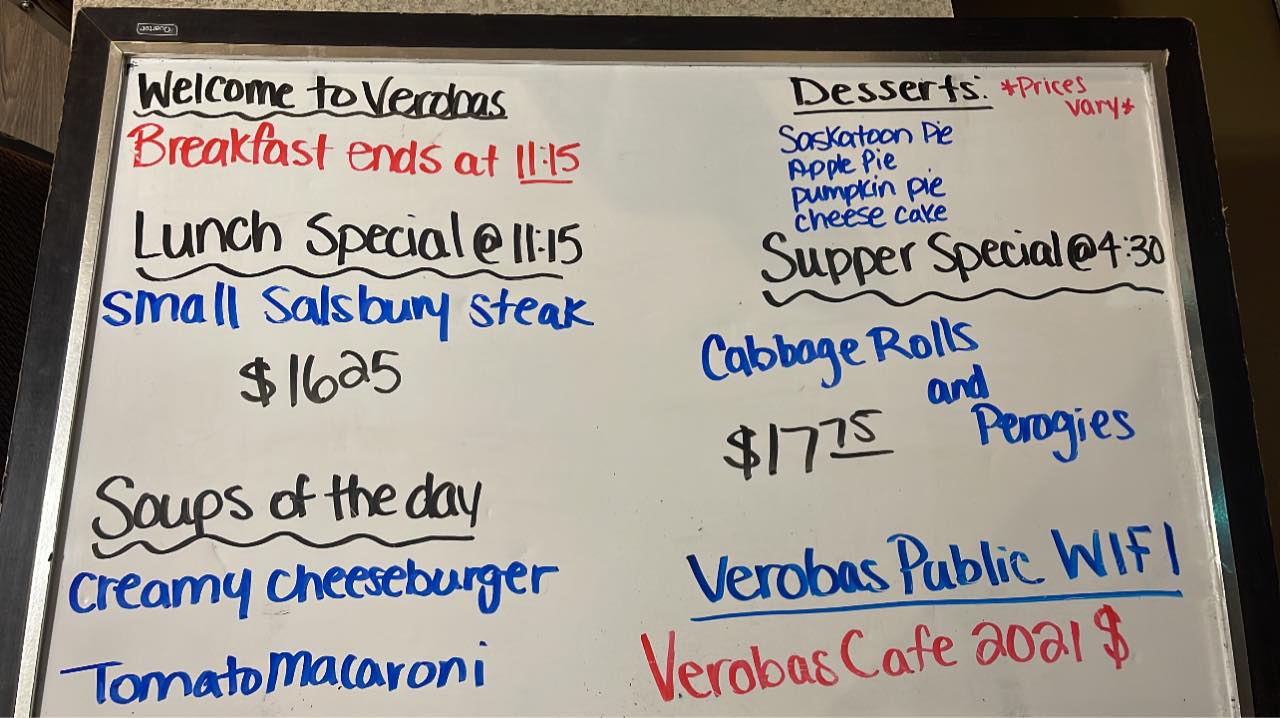 Quartet
Welcome to Verobas
Breakfast ends at 11:15
Lunch Special @ 11:15
small Salsbury steak
$1625
Soups of the day
creamy cheeseburger
Tomato Macaroni
Desserts: *Prices
vary*
Saskatoon Pie
Apple Pie
pumpkin pie
cheese cake
Supper Special @ 4:30
Cabbage Rolls
and
Perogies
$1775
Verobas Public WIFI
Verobas Cafe 2021 $